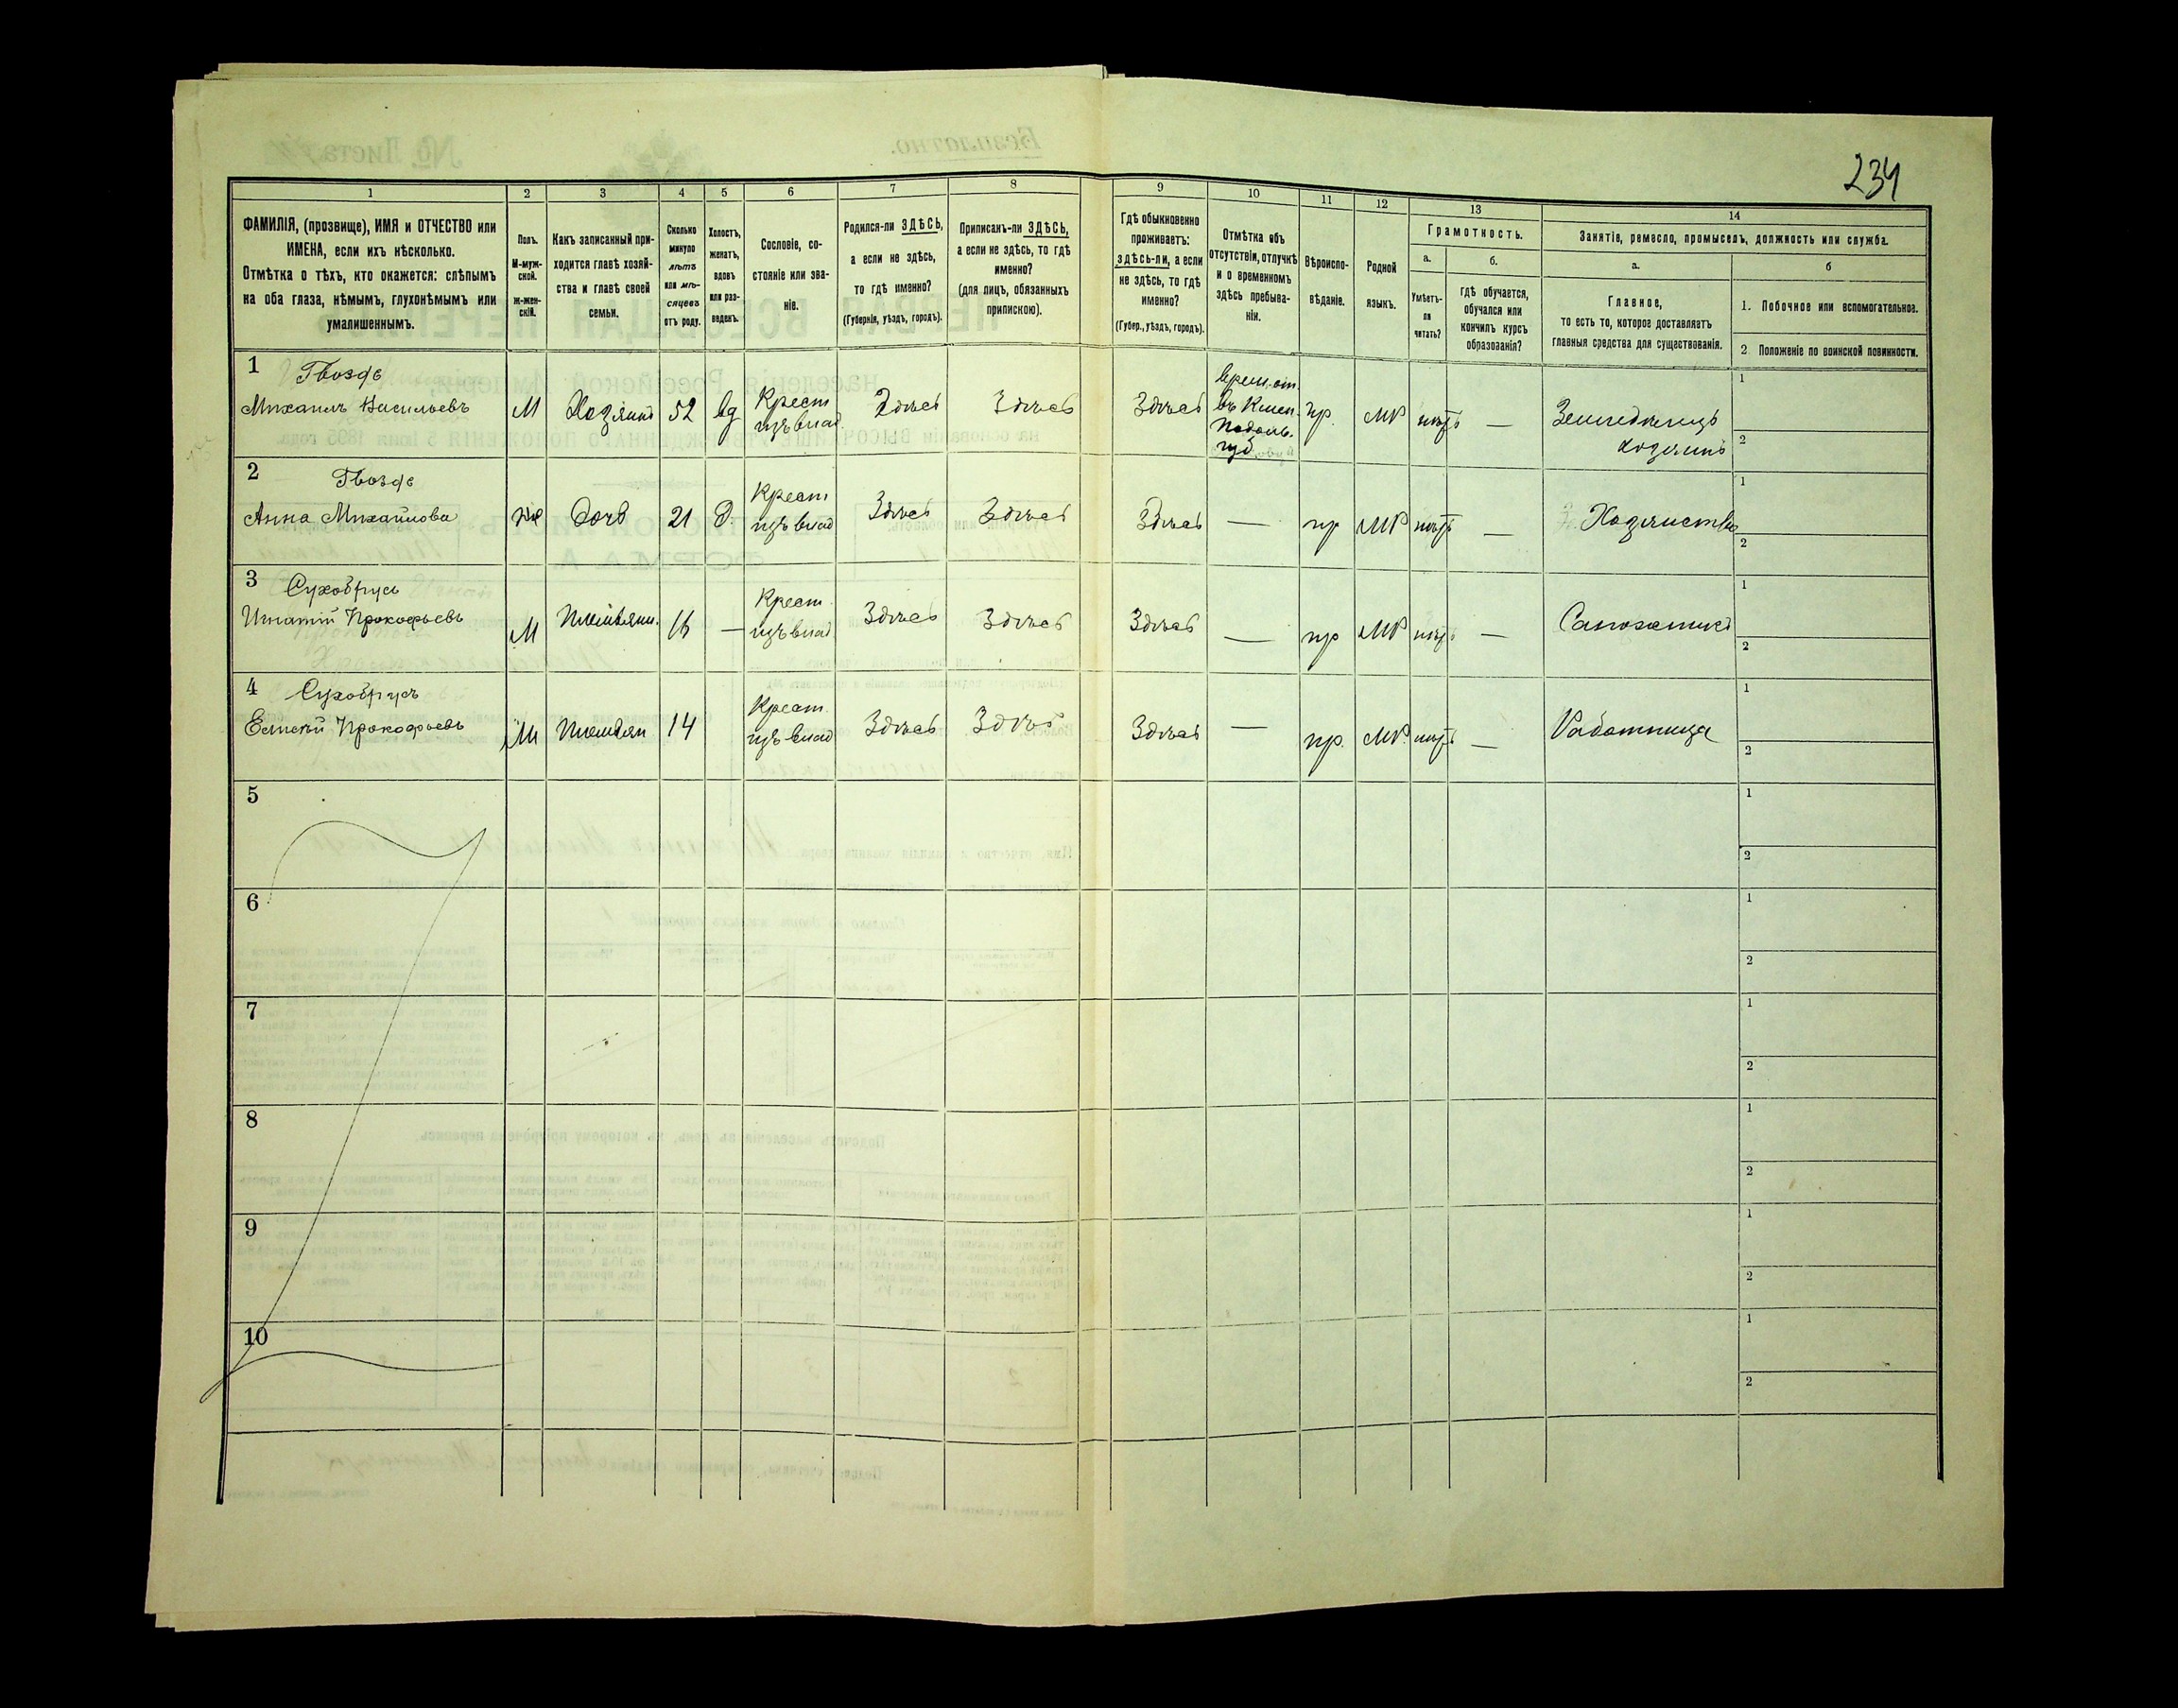 234
1
2
3
4
5
6
7
8
9
10
11
12
13
14
ФАМИЛІЯ, (прозвище), ИМЯ и ОТЧЕСТВО или
ИМЕНА, если ихъ нѣсколько.
Отмѣтка о тѣхъ, кто окажется: слѣпымъ
на оба глаза, нѣмымъ, глухонѣмымъ или
умалишеннымъ.
Полъ.
М-муж-
ской.
Ж-жен-
скій.
Какъ записанный при-
ходится главѣ хозяй-
ства и главѣ своей
семьи.
Сколько
минуло
лѣтъ
или мѣ-
сяцевъ
отъ роду.
Холостъ,
женатъ,
вдовъ
или раз-
веденъ.
Сословіе, со-
стояніе или зва-
ніе.
Родился-ли ЗДѢСЬ,
а если не здѣсь,
то гдѣ именно?
(Губернія, уѣздъ, городъ).
Приписанъ-ли ЗДѢСЬ,
а если не здѣсь, то гдѣ
именно?
(для лицъ, обязанныхъ
припискою).
Гдѣ обыкновенно
проживаетъ:
здѣсь-ли, а если
не здѣсь, то гдѣ
именно?
(Губер., уѣздъ, городъ).
Отмѣтка объ
отсутствіи, отлучкѣ
и о временномъ
здѣсь пребыва-
ніи.
Вѣроиспо-
вѣданіе.
Родной
языкъ.
Грамотность.
а.
Умѣетъ-
ли
читать?
б.
гдѣ обучается,
обучался или
кончилъ курсъ
образованія?
Занятіе, ремесло, промыселъ, должность или служба.
а.
Главное,
то есть то, которое доставляетъ
главныя средства для существованія.
б
1. Побочное или вспомогательное.
2 Положеніе по воинской повинности.
1 Гвоздь
Михаилъ Васильевъ
М
Хозяинъ
52
вд
Крест
изъ влад.
Здѣсь
Здѣсь
Здѣсь
Подоль.
губ
пр.
МР
нѣтъ
—
Земледѣлецъ
хозяинъ
1
2
2 Гвоздь
Анна Михайлова
Ж
Дочь
21
д.
Крест
изъ влад
Здѣсь
Здѣсь
Здѣсь
—
пр
МР
нѣтъ
—
Хозяйство
1
2
3 Сухобрусъ
Игнатій Прокофьевъ
М
Племянн.
16
—
Крест.
изъ влад
Здѣсь
Здѣсь
Здѣсь
—
пр
МР
нѣтъ
—
1
2
4 Сухобрусъ
Прокофьевъ
М
Племян
14
Крест.
изъ влад
Здѣсь
Здѣсь
Здѣсь
—
пр.
МР.
нѣтъ
—
Работница
1
2
5
1
2
6
1
2
7
1
2
8
1
2
9
1
2
10
1
2